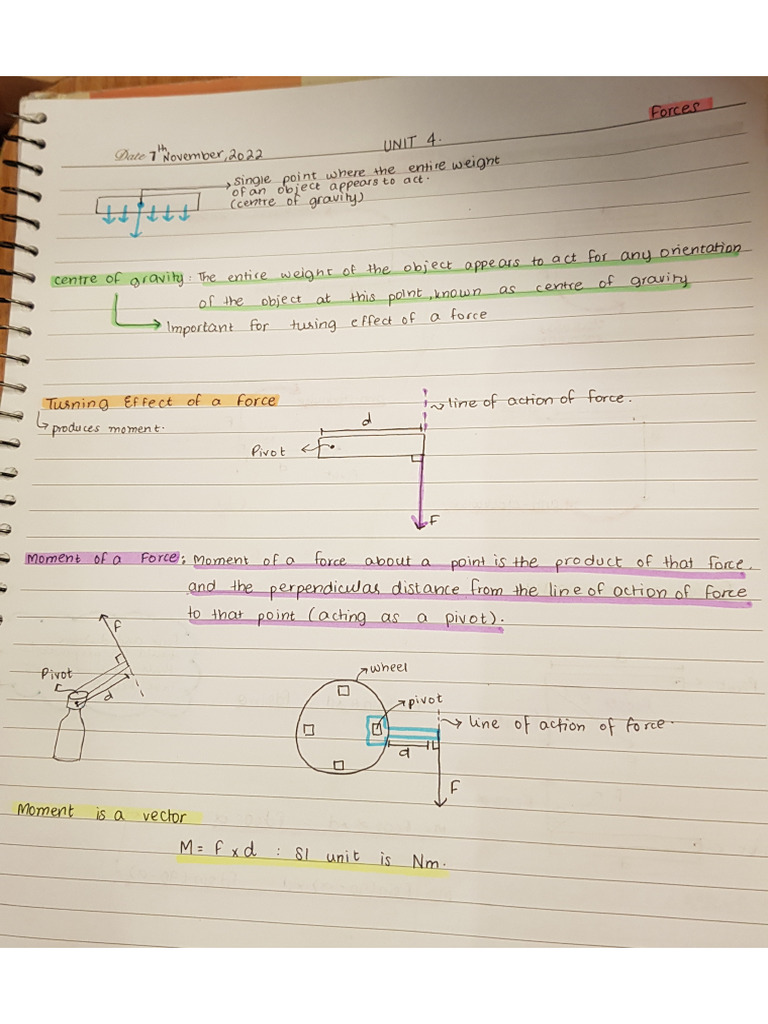 Forces
Date 7th November, 2022
UNIT 4.
single point where the entire weight
of an object appears to act.
(centre of gravity)
centre of gravity: The entire weight of the object appears to act for any orientation
of the object at this point, known as centre of gravity
Important for tusing effect of a force
Turning Effect of a Force
produces moment.
line of action of force.
d
Pivot
F
Moment of a Force: Moment of a force about a point is the product of that force
and the perpendicular distance from the line of action of force
to that point (acting as a pivot).
F
Pivot
d
wheel
pivot
line of action of force.
d
F
Moment is a vector
M = F x d : SI unit is Nm.